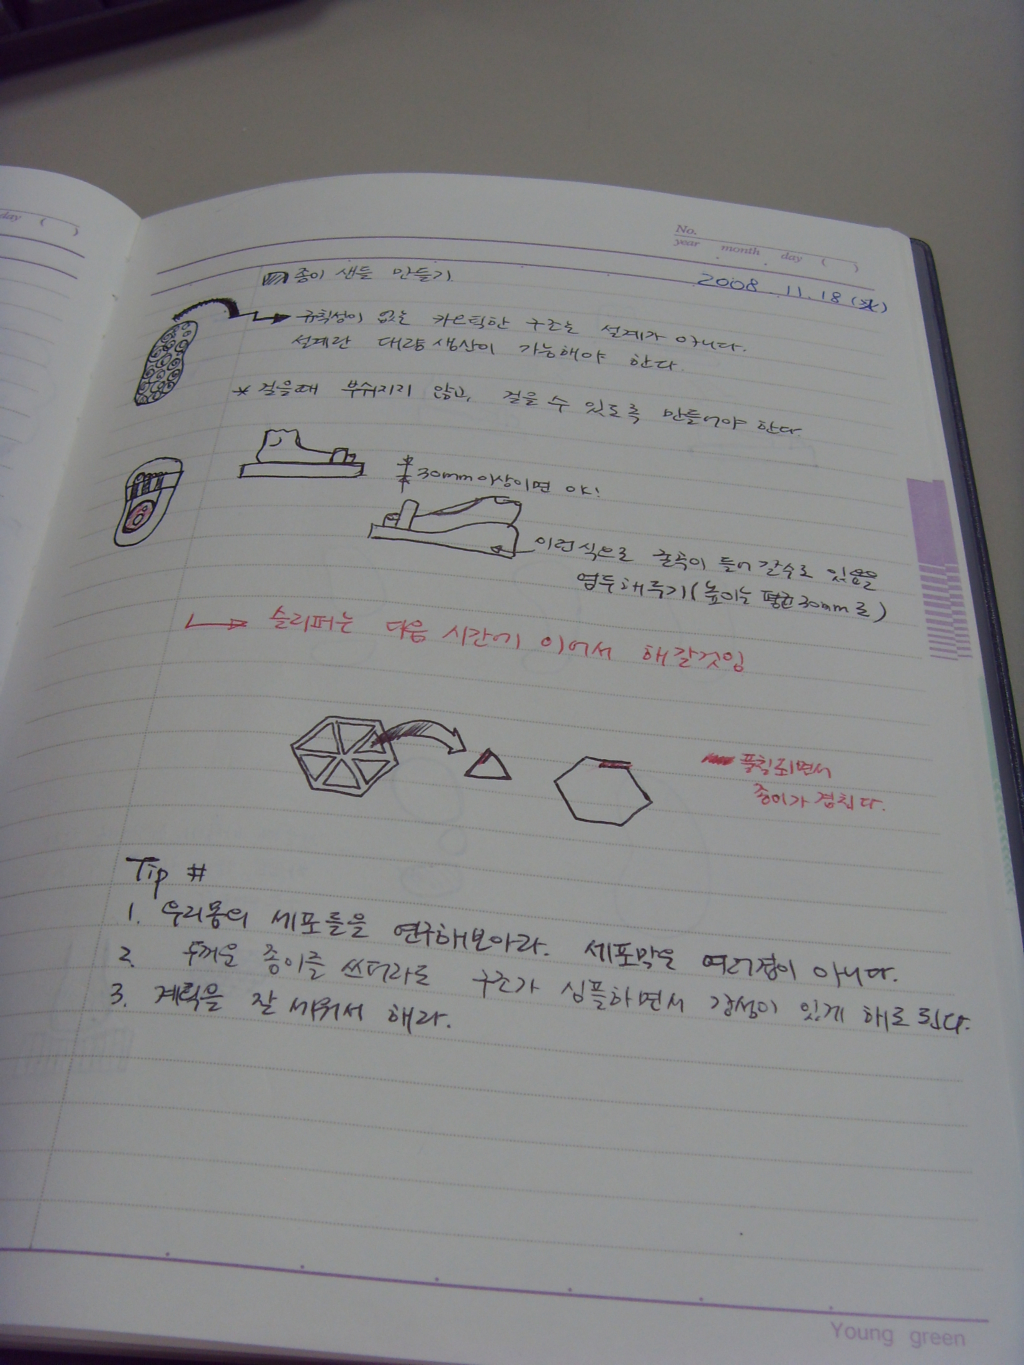 day ( )
No.
year month day ( )
2008. 11. 18 (火)
종이 샌들 만들기
규칙성이 없는 카오틱한 구조는 설계가 아니다.
설계란 대량생산이 가능해야 한다.
* 걸을때 부숴지지 않고, 걸을 수 있도록 만들어야 한다.
30mm이상이면 야!
이런식으로 굴곡이 들어갈수도 있음을
염두해두기(높이는 평균 30mm로)
슬리퍼는 다음 시간에 이어서 해갈것임
폴칙되면서
종이가 겹친다.
Tip #
1. 우리몸의 세포들을 연구해보아라. 세포막은 여러겹이 아니다.
2. 두꺼운 종이를 쓰더라도 구조가 심플하면서 강성이 있게 해도 된다.
3. 계획을 잘 세워서 해라.
Young green